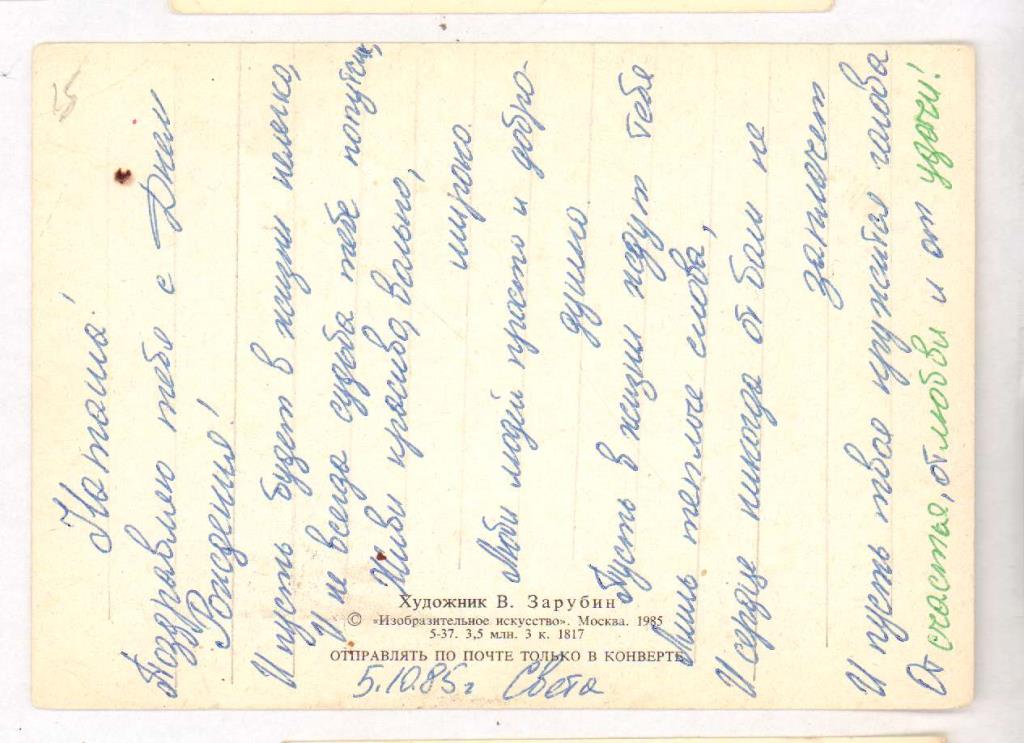 Наташа!
Поздравляю тебя с Днем
Рождения!
И пусть будет в жизни нелегко,
И не всегда судьба тебе попутчик,
Живи красиво, вольно,
широко.
Люби людей просто и добро-
душно
Пусть в жизни ждут тебя
Лишь теплые слова,
И сердце никогда от боли не
заплачет
И пусть твоя кружится голова
От счастья, от любви и от удачи!
Художник В. Зарубин
© «Изобразительное искусство». Москва. 1985
5-37. 3,5 млн. 3 к. 1817
ОТПРАВЛЯТЬ ПО ПОЧТЕ ТОЛЬКО В КОНВЕРТЕ
5.10.85г Света